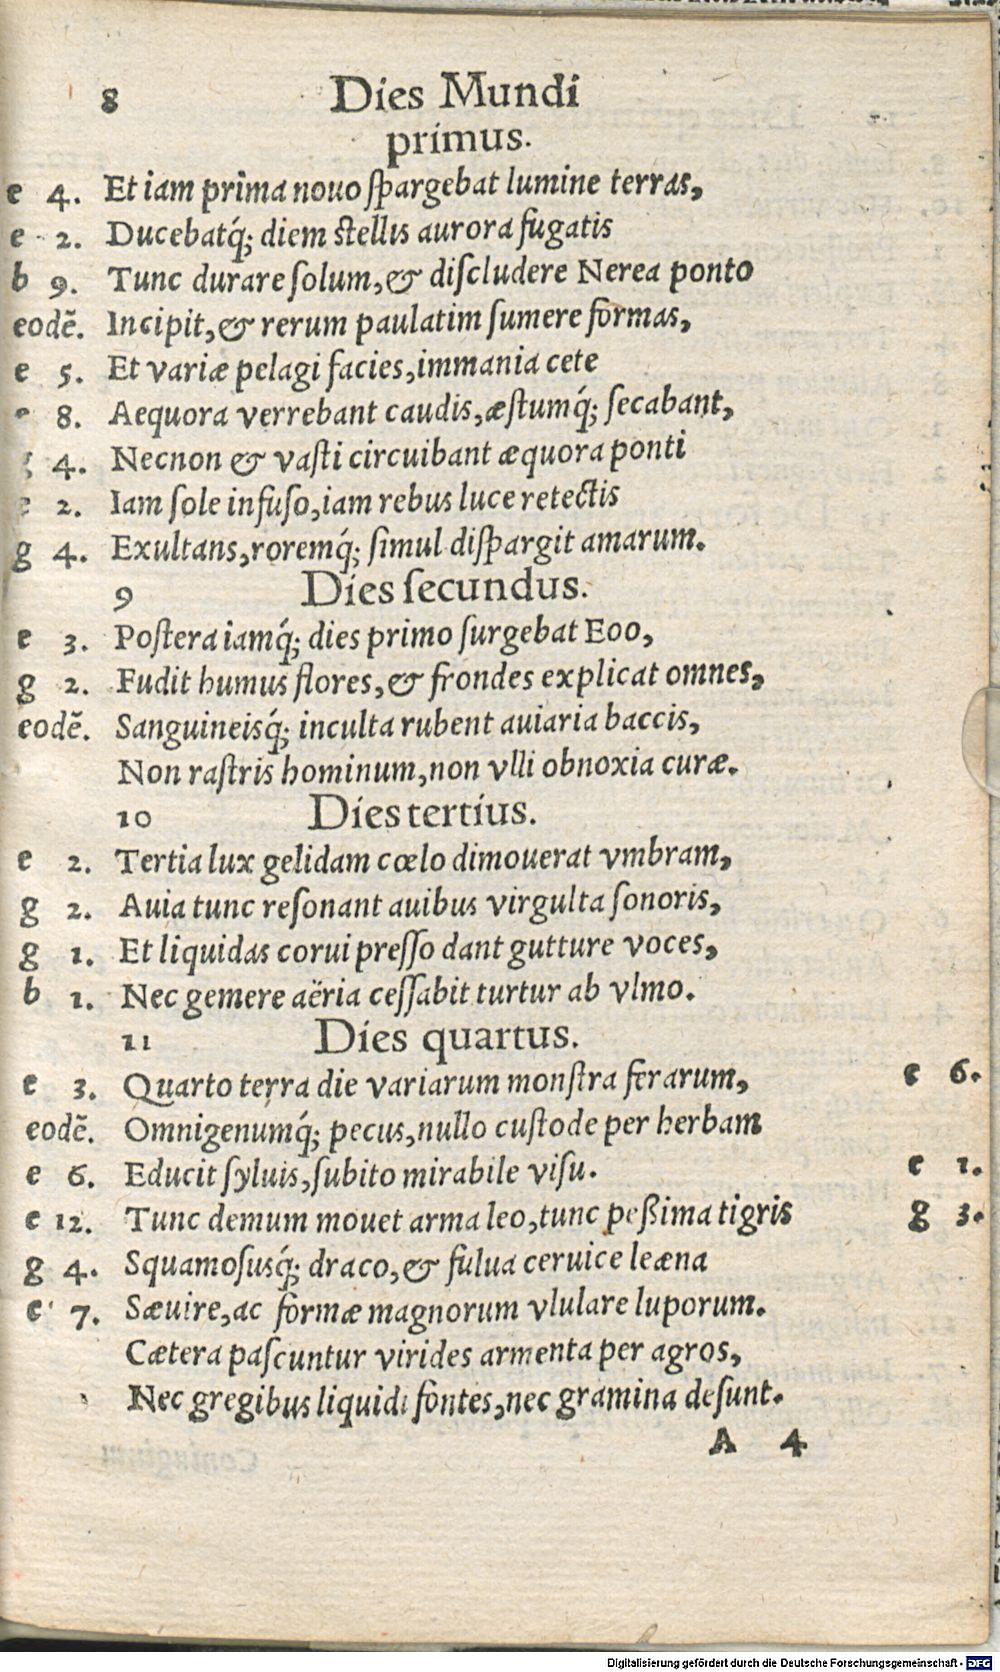 8 Dies Mundi
primus.
e 4. Et iam prima nouo spargebat lumine terras,
e 2. Ducebatq́; diem stellis aurora fugatis
b 9. Tunc durare solum, & discludere Nerea ponto
eodē. Incipit, & rerum paulatim sumere formas,
e 5. Et variæ pelagi facies, immania cete
e 8. Aequora verrebant caudis, æstumq́; secabant,
g 4. Necnon & vasti circuibant æquora ponti
e 2. Iam sole infuso, iam rebus luce retectis
g 4. Exultans, roremq́; simul dispargit amarum.
9 Dies secundus.
e 3. Postera iamq́; dies primo surgebat Eoo,
g 2. Fudit humus flores, & frondes explicat omnes,
eodē. Sanguineisq́; inculta rubent auiaria baccis,
Non rastris hominum, non vlli obnoxia curæ.
10 Dies tertius.
e 2. Tertia lux gelidam cœlo dimouerat vmbram,
g 2. Auia tunc resonant auibus virgulta sonoris,
g 1. Et liquidas corui presso dant gutture voces,
b 1. Nec gemere aëria cessabit turtur ab vlmo.
11 Dies quartus.
e 3. Quarto terra die variarum monstra ferarum, e 6.
eodē. Omnigenumq́; pecus, nullo custode per herbam
e 6. Educit syluis, subito mirabile visu. e 1.
e 12. Tunc demum mouet arma leo, tunc peßima tigris g 3.
g 4. Squamosusq́; draco, & fulua ceruice leæna
e 7. Sæuire, ac formæ magnorum vlulare luporum.
Cætera pascuntur virides armenta per agros,
Nec gregibus liquidi fontes, nec gramina desunt.
A 4
Digitalisierung gefördert durch die Deutsche Forschungsgemeinschaft - DFG